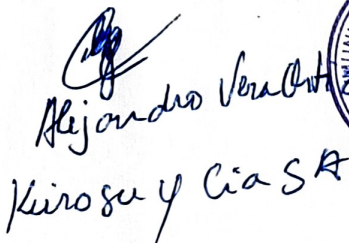 Alejandro Vera Orti
Kurosu y Cia SA